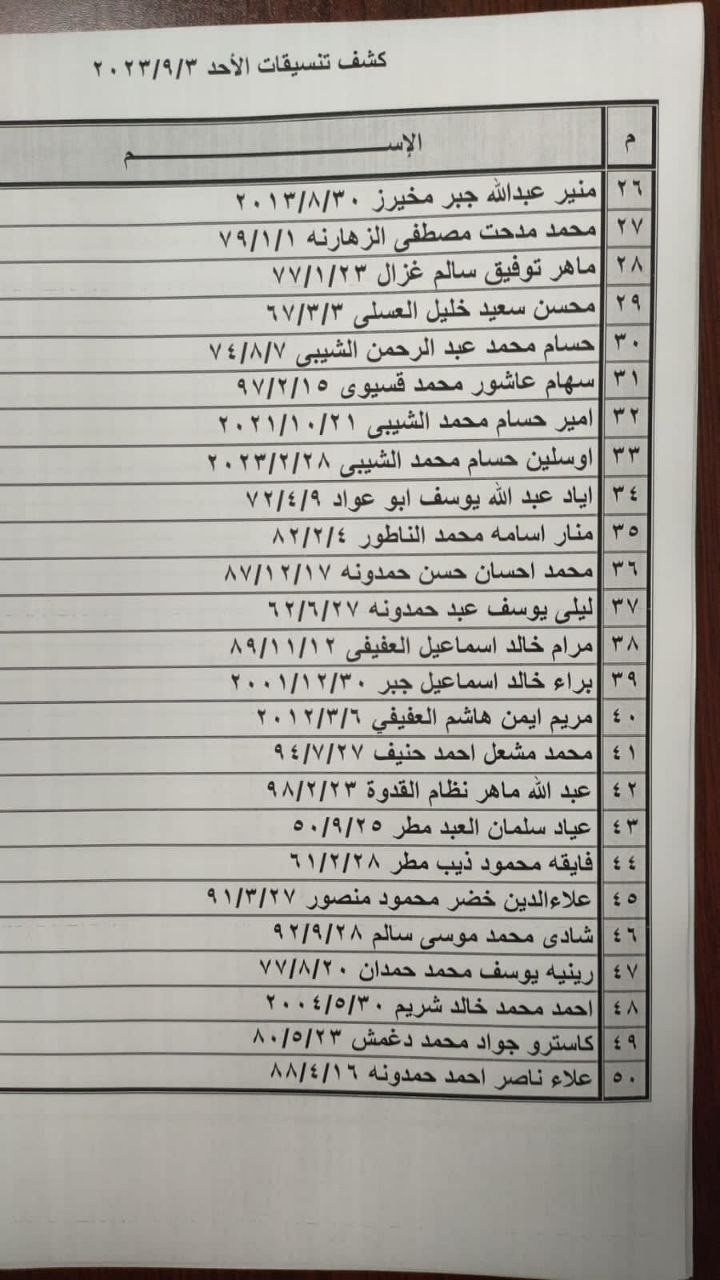 كشف تنسيقات الأحد ٢٠٢٣/٩/٣
م الإســـــــــم
٢٦ منير عبدالله جبر مخيرز ٢٠١٣/٨/٣٠
٢٧ محمد مدحت مصطفى الزهارنه ٧٩/١/١
٢٨ ماهر توفيق سالم غزال ٧٧/١/٢٣
٢٩ محسن سعيد خليل العسلى ٦٧/٣/٣
٣٠ حسام محمد عبد الرحمن الشيبى ٧٤/٨/٧
٣١ سهام عاشور محمد قسيوى ٩٧/٢/١٥
٣٢ امير حسام محمد الشيبى ٢٠٢١/١٠/٢١
٣٣ اوسلين حسام محمد الشيبى ٢٠٢٣/٢/٢٨
٣٤ اياد عبد الله يوسف ابو عواد ٧٢/٤/٩
٣٥ منار اسامه محمد الناطور ٨٢/٢/٤
٣٦ محمد احسان حسن حمدونه ٨٧/١٢/١٧
٣٧ ليلى يوسف عبد حمدونه ٦٢/٦/٢٧
٣٨ مرام خالد اسماعيل العفيفى ٨٩/١١/١٢
٣٩ براء خالد اسماعيل جبر ٢٠٠١/١٢/٣٠
٤٠ مريم ايمن هاشم العفيفي ٢٠١٢/٣/٦
٤١ محمد مشعل احمد حنيف ٩٤/٧/٢٧
٤٢ عبد الله ماهر نظام القدوة ٩٨/٢/٢٣
٤٣ عياد سلمان العبد مطر ٥٠/٩/٢٥
٤٤ فايقه محمود ذيب مطر ٦١/٢/٢٨
٤٥ علاءالدين خضر محمود منصور ٩١/٣/٢٧
٤٦ شادى محمد موسى سالم ٩٢/٩/٢٨
٤٧ رينيه يوسف محمد حمدان ٧٧/٨/٢٠
٤٨ احمد محمد خالد شريم ٢٠٠٤/٥/٣٠
٤٩ كاسترو جواد محمد دغمش ٨٠/٥/٢٣
٥٠ علاء ناصر احمد حمدونه ٨٨/٤/١٦